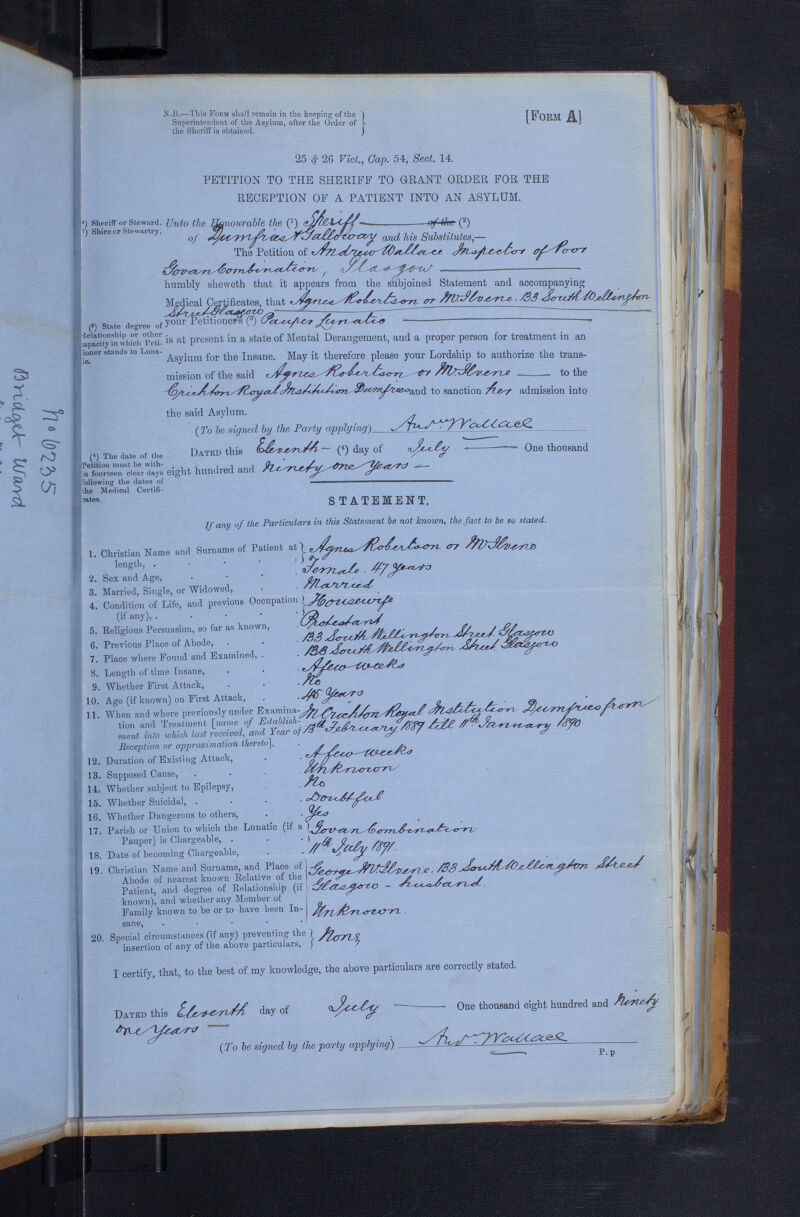 N.B.—This Form shall remain in the keeping of the
Superintendent of the Asylum, after the Order of
the Sheriff is obtained.
[Form A]
25 & 26 Vict., Cap. 54, Sect. 14.
PETITION TO THE SHERIFF TO GRANT ORDER FOR THE
RECEPTION OF A PATIENT INTO AN ASYLUM.
(¹) Sheriff or Steward.
(²) Shire or Stewartry.
Unto the Honourable the (¹) Sheriff of the (²)
of Dumfries & Galloway and his Substitutes,—
The Petition of Andrew Wallace Inspector of Poor
Govan Combination, Glasgow
humbly sheweth that it appears from the subjoined Statement and accompanying
Medical Certificates, that Agnes Robertson or McIlvene. 133 South Wellington
Street Glasgow
(³) State degree of
Relationship or other
capacity in which Peti-
tioner stands to Luna-
tic.
your Petitioner's (³) Pauper Lunatic
is at present in a state of Mental Derangement, and a proper person for treatment in an
Asylum for the Insane. May it therefore please your Lordship to authorize the trans-
mission of the said Agnes Robertson or McIlvene to the
Crichton Royal Institution Dumfries and to sanction her admission into
the said Asylum.
(To be signed by the Party applying) Andw Wallace
(⁴) The date of the
Petition must be with-
in fourteen clear days
following the dates of
the Medical Certifi-
cates.
Dated this Eleventh — (⁴) day of July One thousand
eight hundred and Ninety one Years —
STATEMENT.
If any of the Particulars in this Statement be not known, the fact to be so stated.
1. Christian Name and Surname of Patient at length, . Agnes Robertson or McIlvene
2. Sex and Age, Female. 47 Years
3. Married, Single, or Widowed, Married
4. Condition of Life, and previous Occupation (if any), . Housewife
5. Religious Persuasion, so far as known, Protestant
6. Previous Place of Abode, . 133 South Wellington Street Glasgow
7. Place where Found and Examined, . 133 South Wellington Street Glasgow
8. Length of time Insane, A few weeks
9. Whether First Attack, No
10. Age (if known) on First Attack, 45 Years
11. When and where previously under Examina-
tion and Treatment [name of Establish-
ment into which last received, and Year of
Reception or approximation thereto]. In Crichton Royal Institution Dumfries from
13th February 1889 till 11th January 1890
12. Duration of Existing Attack, A few weeks
13. Supposed Cause, Unknown
14. Whether subject to Epilepsy, No
15. Whether Suicidal, . Doubtful
16. Whether Dangerous to others, Yes
17. Parish or Union to which the Lunatic (if a Pauper) is Chargeable, . Govan Combination
18. Date of becoming Chargeable, 11th July 1891.
19. Christian Name and Surname, and Place of
Abode of nearest known Relative of the
Patient, and degree of Relationship (if
known), and whether any Member of
Family known to be or to have been In-
sane, George McIlvene. 133 South Wellington Street
Glasgow - husband.
Unknown.
20. Special circumstances (if any) preventing the
insertion of any of the above particulars, None
I certify, that, to the best of my knowledge, the above particulars are correctly stated.
Dated this Eleventh day of July One thousand eight hundred and Ninety
One Years —
(To be signed by the party applying) Andw Wallace
P.p
No 6235
Bridget Ward